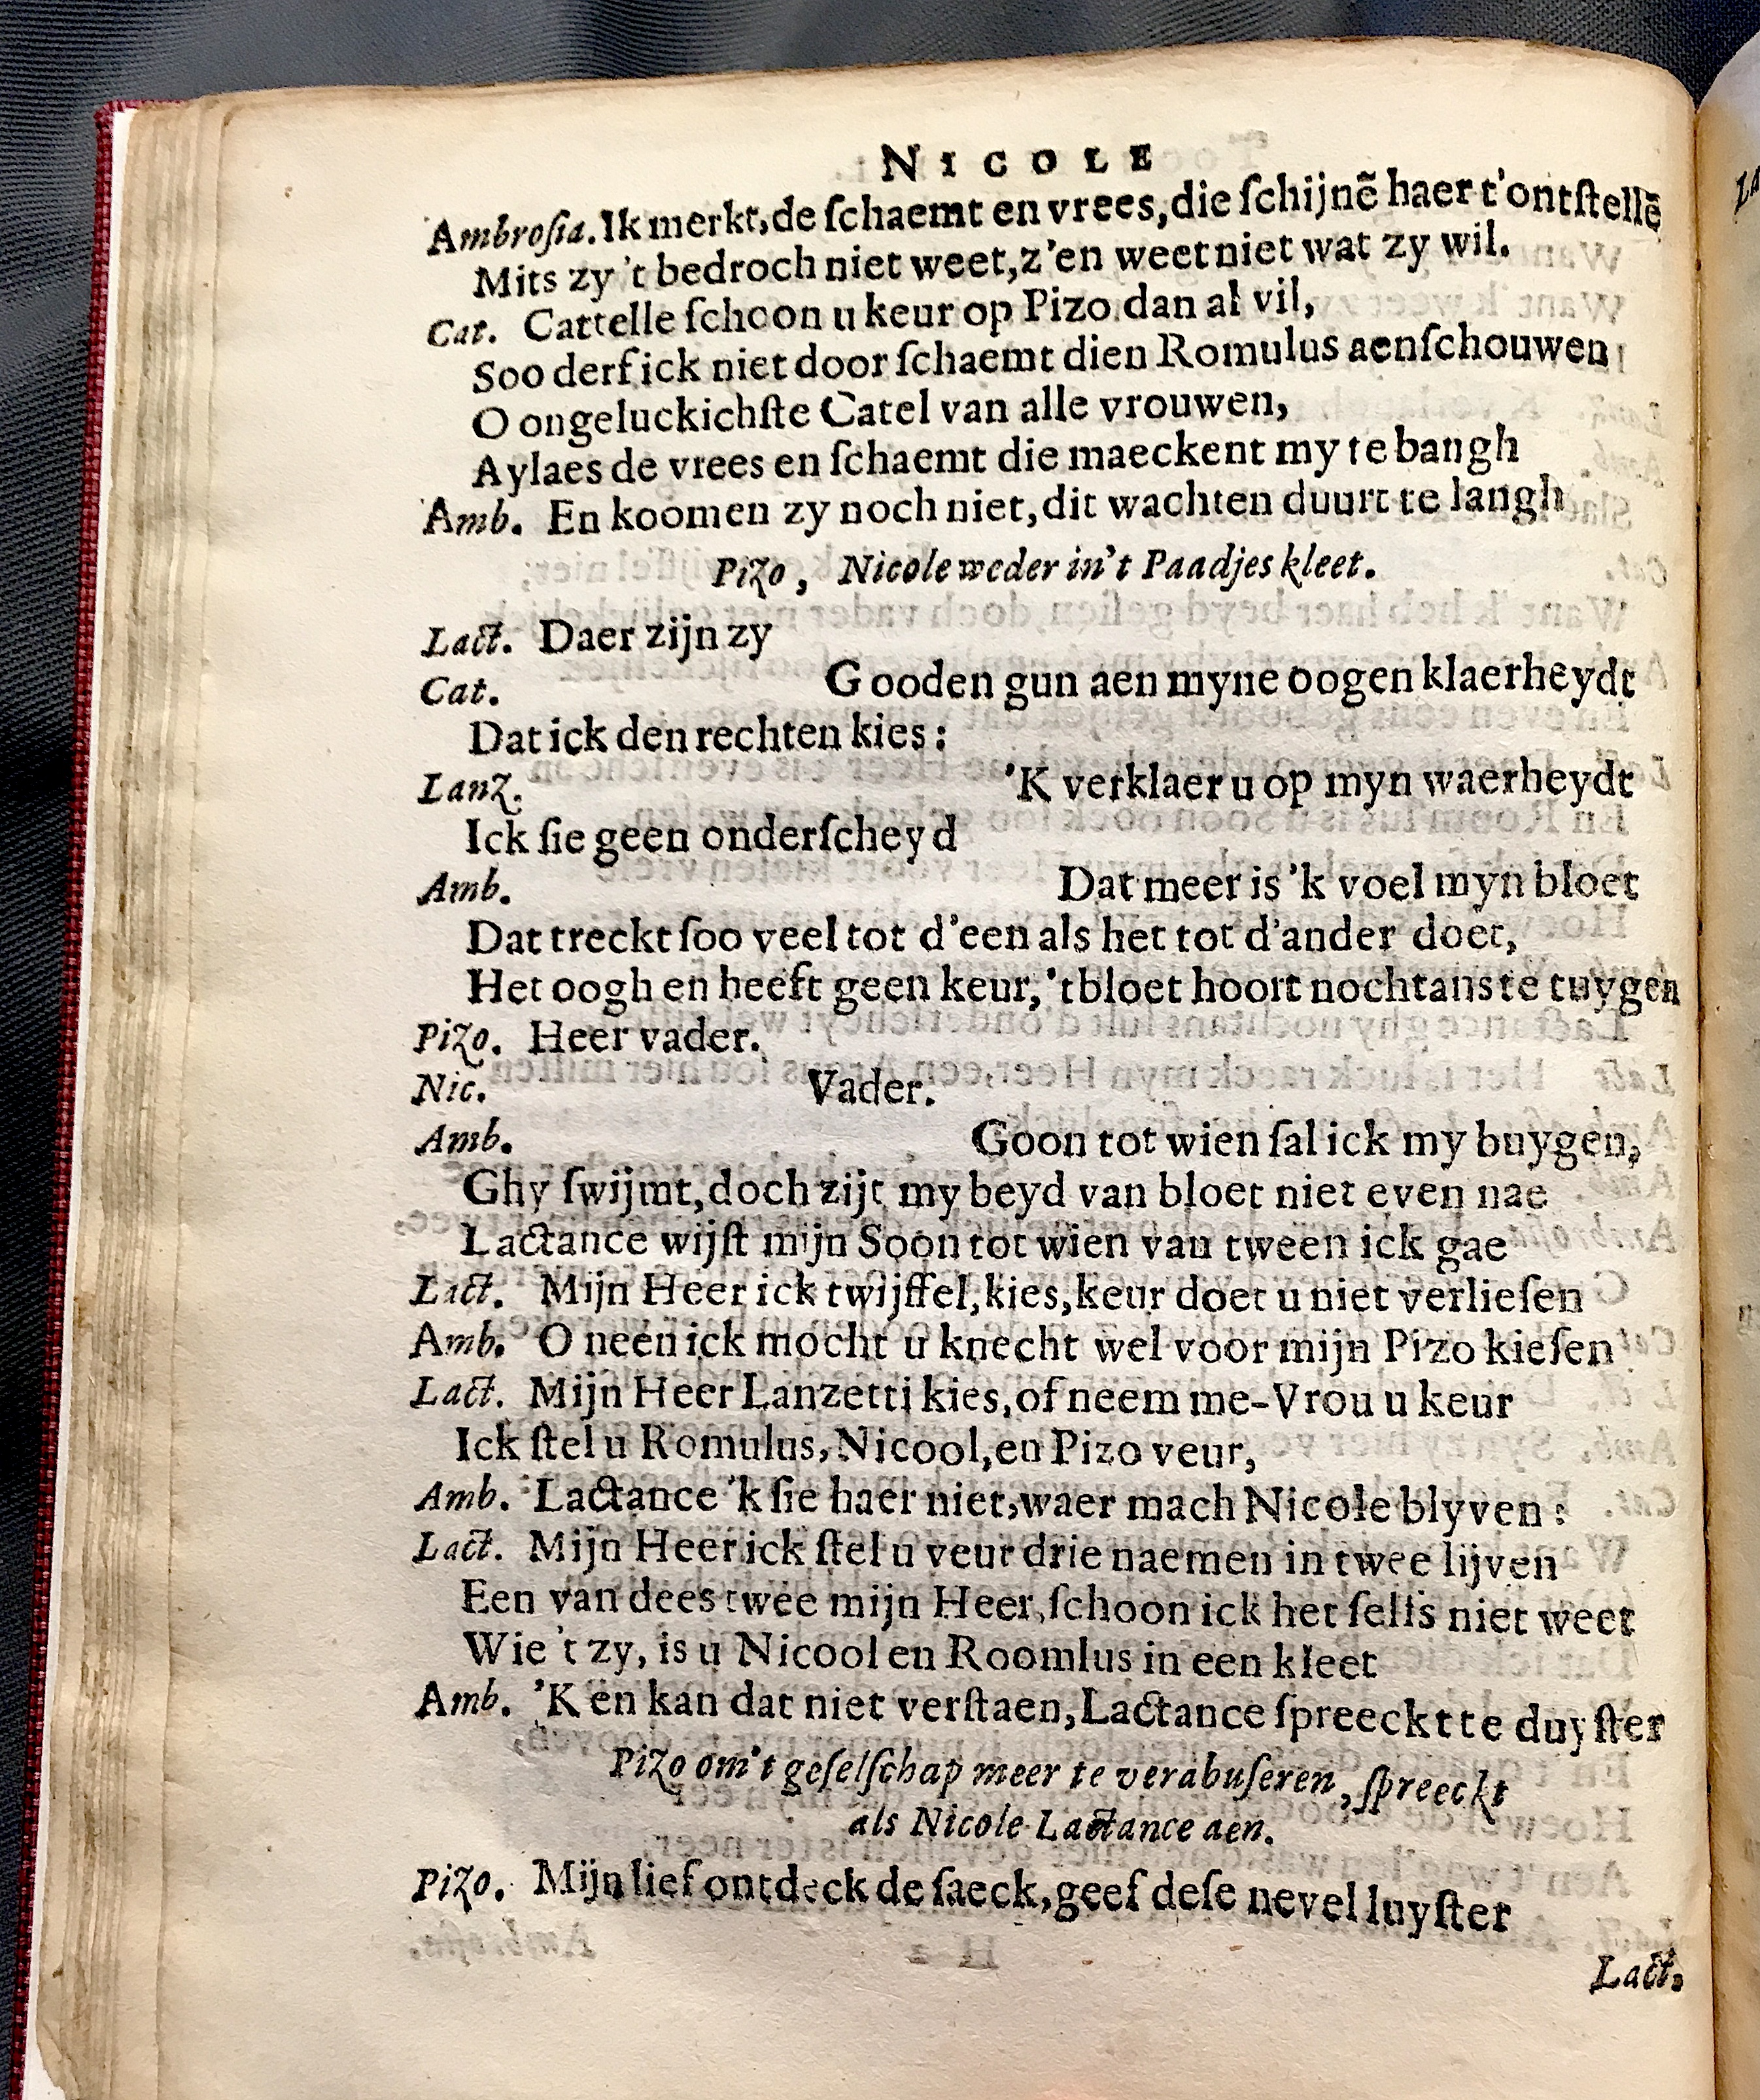 NICOLE
Ambroſia. Ik merkt, de ſchaemt en vrees, die ſchijnẽ haer t'ontſtellẽ
Mits zy 't bedroch niet weet, z'en weet niet wat zy wil.
Cat. Cattelle ſchoon u keur op Pizo dan al vil,
Soo derf ick niet door ſchaemt dien Romulus aenſchouwen
O ongeluckichſte Catel van alle vrouwen,
Aylaes de vrees en ſchaemt die maeckent my te bangh
Amb. En koomen zy noch niet, dit wachten duurt te langh
Pizo, Nicole weder in't Paadjes kleet.
Lact. Daer zijn zy
Cat. Gooden gun aen myne oogen klaerheydt
Dat ick den rechten kies:
Lanz. 'K verklaer u op myn waerheydt
Ick ſie geen onderſcheyd
Amb. Dat meer is 'k voel myn bloet
Dat treckt ſoo veel tot d'een als het tot d'ander doet,
Het oogh en heeft geen keur, 't bloet hoort nochtans te tuygen
Pizo. Heer vader.
Nic. Vader.
Amb. Goon tot wien ſal ick my buygen,
Ghy ſwijmt, doch zijt my beyd van bloet niet even nae
Lactance wijſt mijn Soon tot wien van tween ick gae
Lact. Mijn Heer ick twijffel, kies, keur doet u niet verlieſen
Amb. O neen ick mocht u knecht wel voor mijn Pizo kieſen
Lact. Mijn Heer Lanzetti kies, of neem me-Vrou u keur
Ick ſtel u Romulus, Nicool, en Pizo veur,
Amb. Lactance 'k ſie haer niet, waer mach Nicole blyven:
Lact. Mijn Heer ick ſtel u veur drie naemen in twee lijven
Een van dees twee mijn Heer, ſchoon ick het ſelfs niet weet
Wie 't zy, is u Nicool en Roomlus in een kleet
Amb. 'K en kan dat niet verſtaen, Lactance ſpreeckt te duyſter
Pizo om't geſelſchap meer te verabuſeren, ſpreeckt
als Nicole Lactance aen.
Pizo. Mijn lief ontdeck de ſaeck, geef deſe nevel luyſter
Lact.